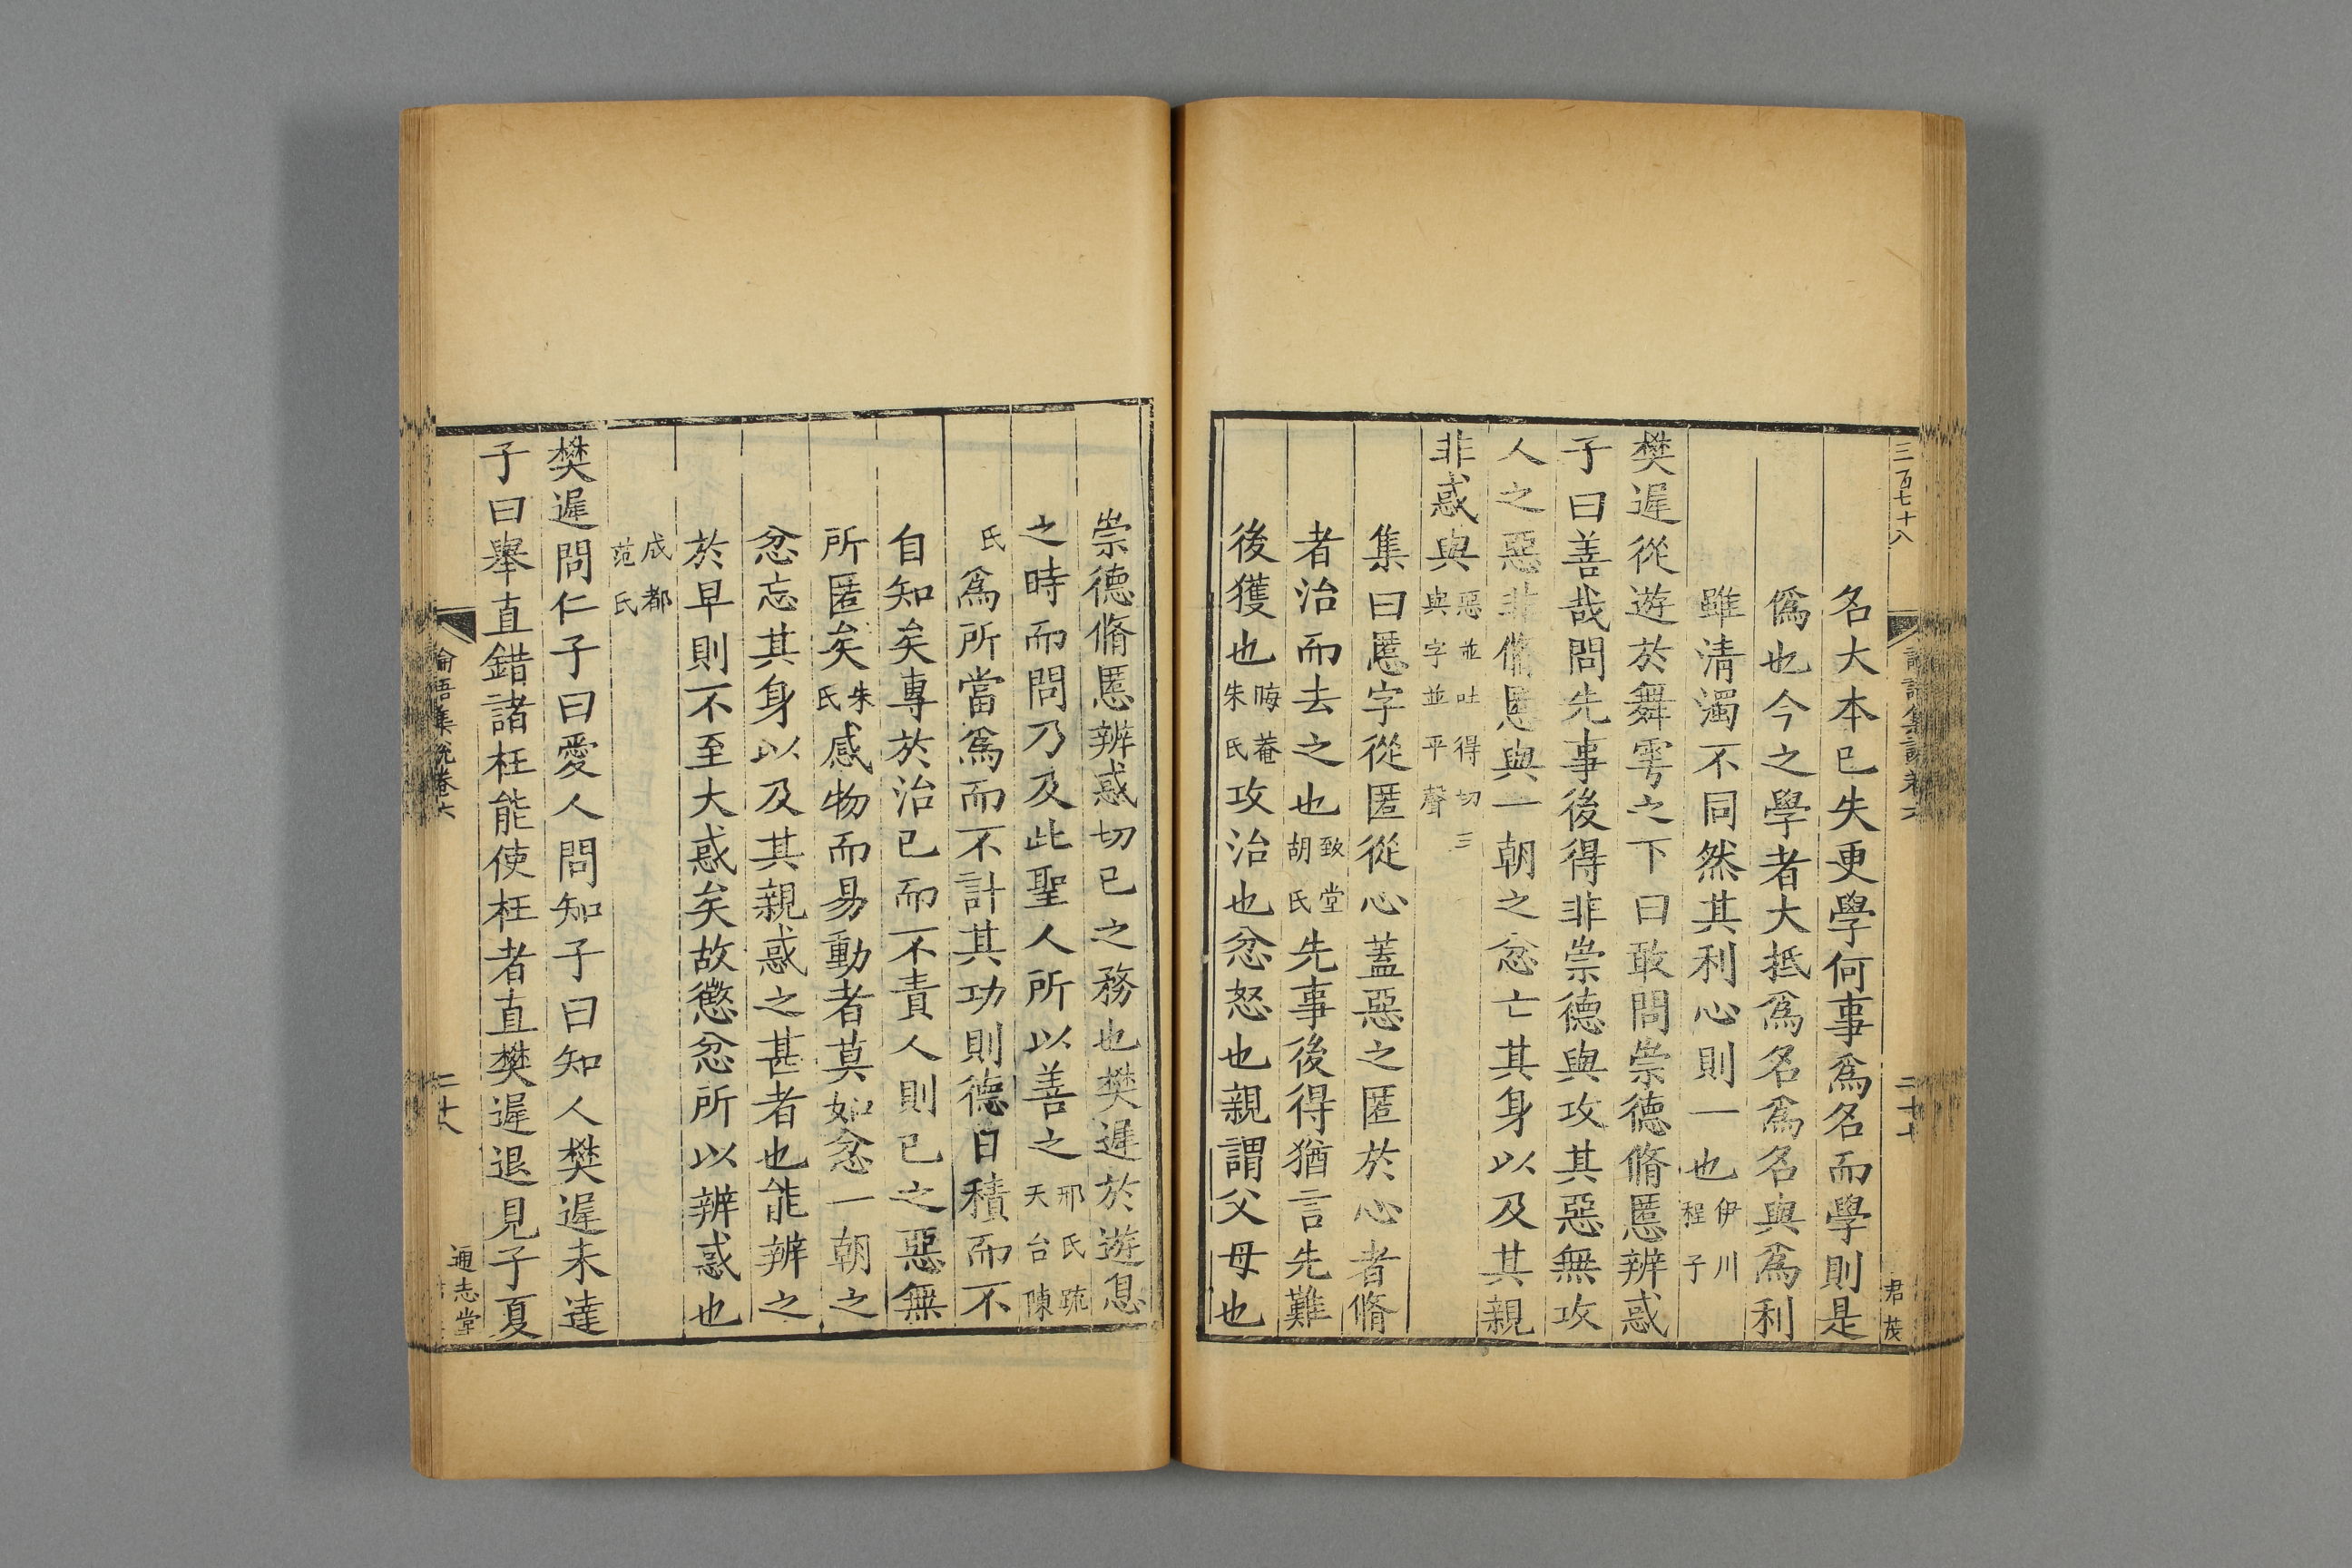 三百七十八
二十七
君茂
名大本已失更學何事爲名而學則是
僞也今之學者大抵爲名爲名與爲利
雖清濁不同然其利心則一也伊川程子
樊遲從遊於舞雩之下曰敢問崇德脩慝辨惑
子曰善哉問先事後得非崇德與攻其惡無攻
人之惡非脩慝與一朝之忿亡其身以及其親
非惑與惡並吐得切三與字並平聲
集曰慝字從匿從心蓋惡之匿於心者脩
者治而去之也致堂胡氏先事後得猶言先難
後獲也晦菴朱氏攻治也忿怒也親謂父母也
崇德脩慝辨惑切已之務也樊遲於遊息
之時而問乃及此聖人所以善之邢氏疏天台陳
氏爲所當爲而不計其功則德日積而不
自知矣專於治已而不責人則已之惡無
所匿矣朱氏感物而易動者莫如忿一朝之
忿忘其身以及其親惑之甚者也能辨之
於早則不至大惑矣故懲忿所以辨惑也
成都范氏
樊遲問仁子曰愛人問知子曰知人樊遲未達
子曰舉直錯諸枉能使枉者直樊遲退見子夏
論語集說卷六
二十八
通志堂